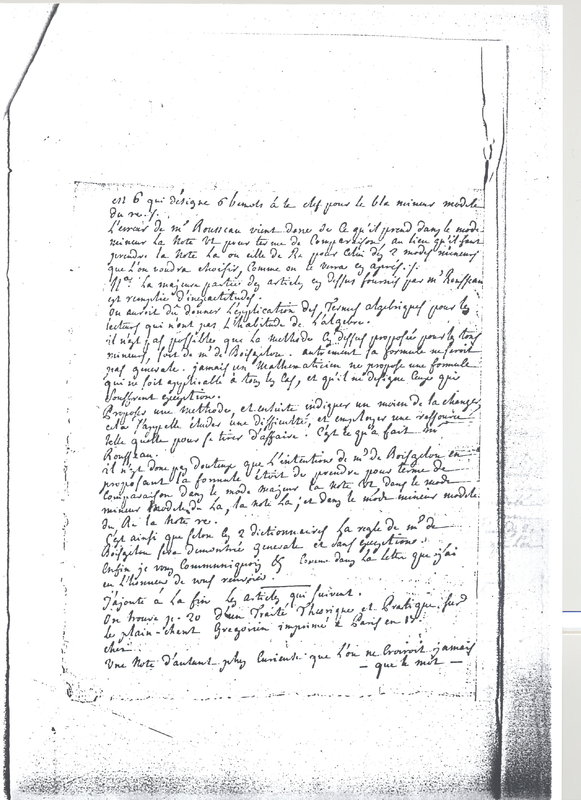 est 6 qui désigne 6 bemols à la clef pour le la mineur modele
du re ./.
L'erreur de mr Rousseau vient donc de ce qu'il prend dans le mode
mineur la Note Ut pour terme de Comparaison, au lieu qu'il faut
prendre la Note La ou celle de Re pour celui des 2 modes mineurs
que l'on voudra choisir, Comme on le verra cy après ./.
Na. La majeure partie des articles cy dessus fournis par mr Rousseau
est remplie d'inexactitudes.
On auroit dû donner l'explication des Termes algebriques pour les
lecteurs qui n'ont pas l'habitude de l'algebre.
il n'est pas possible que la methode cy dessus proposée pour les tons
mineurs, soit de mr de Boisgelou. autrement sa formule ne seroit
pas generale. jamais un Mathematicien ne propose une formule
qui ne soit applicable à tous les Cas, et qu'il ne designe Ceux qui
souffrent exception.
Proposer une methode, et ensuite indiquer un moien de la changer,
cela s'appelle éluder une difficulté, et employer une ressource
telle quelle pour se tirer d'affaire. C'est ce qu'a fait mr
Rousseau.
il n'est donc pas douteux que L'intention de mr de Boisgelou en
proposant la formule étoit de prendre pour terme de
Comparaison dans le mode majeur la note Ut dans le mode
mineur modele du La, la note La; et dans le mode mineur modele
du Re la Note re.
C'est ainsi que selon les 2 dictionnaires la regle de mr de
Boisgelou sera demontrée generale et sans exceptions.
Enfin je vous Communiquois &c Comme dans la Lettre que j'ai
eu L'honneur de vous renvoier.
J'ajoute à La fin les articles qui suivent.
On trouve p. 20 d'un Traité Theorique et Pratique sur
le plain-chant Gregorien imprimé à Paris en 17
chez
Une Note d'autant plus Curieuse que l'on ne Croiroit jamais
— que le mot —